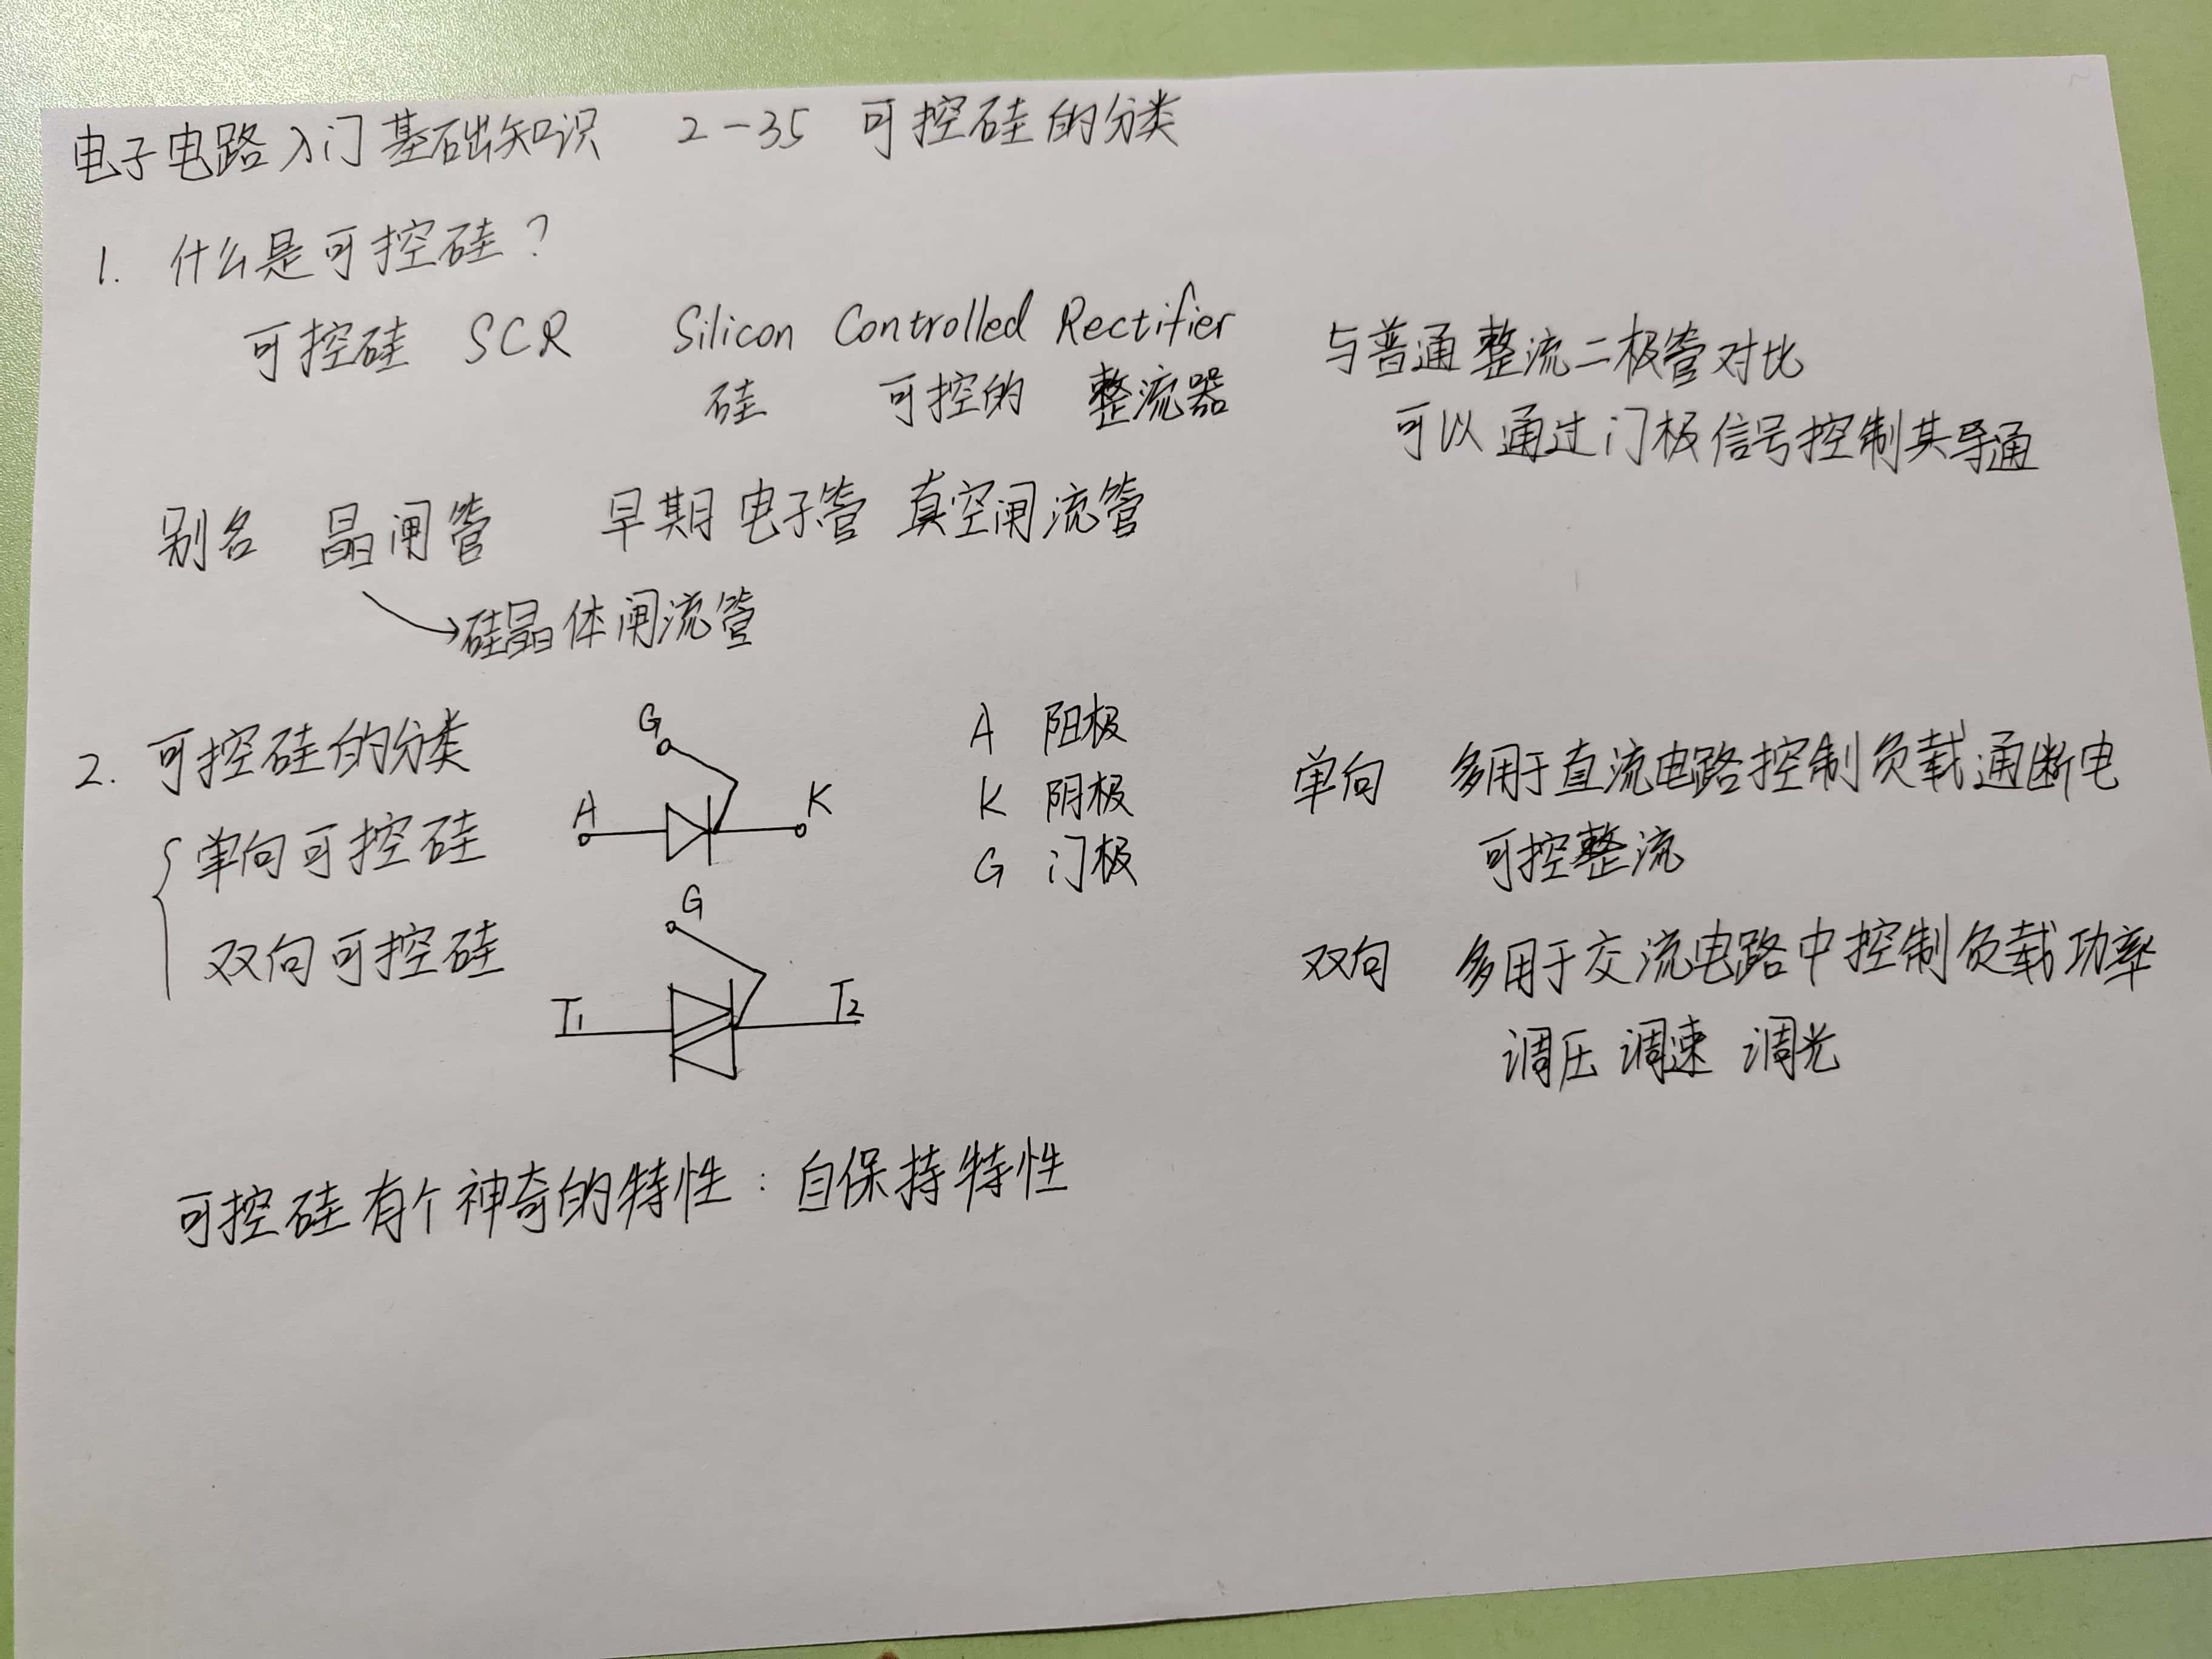 电子电路入门基础知识 2-35 可控硅的分类
1. 什么是可控硅？
可控硅 SCR Silicon Controlled Rectifier
硅 可控的 整流器
与普通整流二极管对比
可以通过门极信号控制其导通
别名 晶闸管 早期电子管 真空闸流管
硅晶体闸流管
2. 可控硅的分类
单向可控硅
双向可控硅
G
A K
G
T1 T2
A 阳极
K 阴极
G 门极
单向 多用于直流电路控制负载通断电
可控整流
双向 多用于交流电路中控制负载功率
调压 调速 调光
可控硅有个神奇的特性：自保持特性